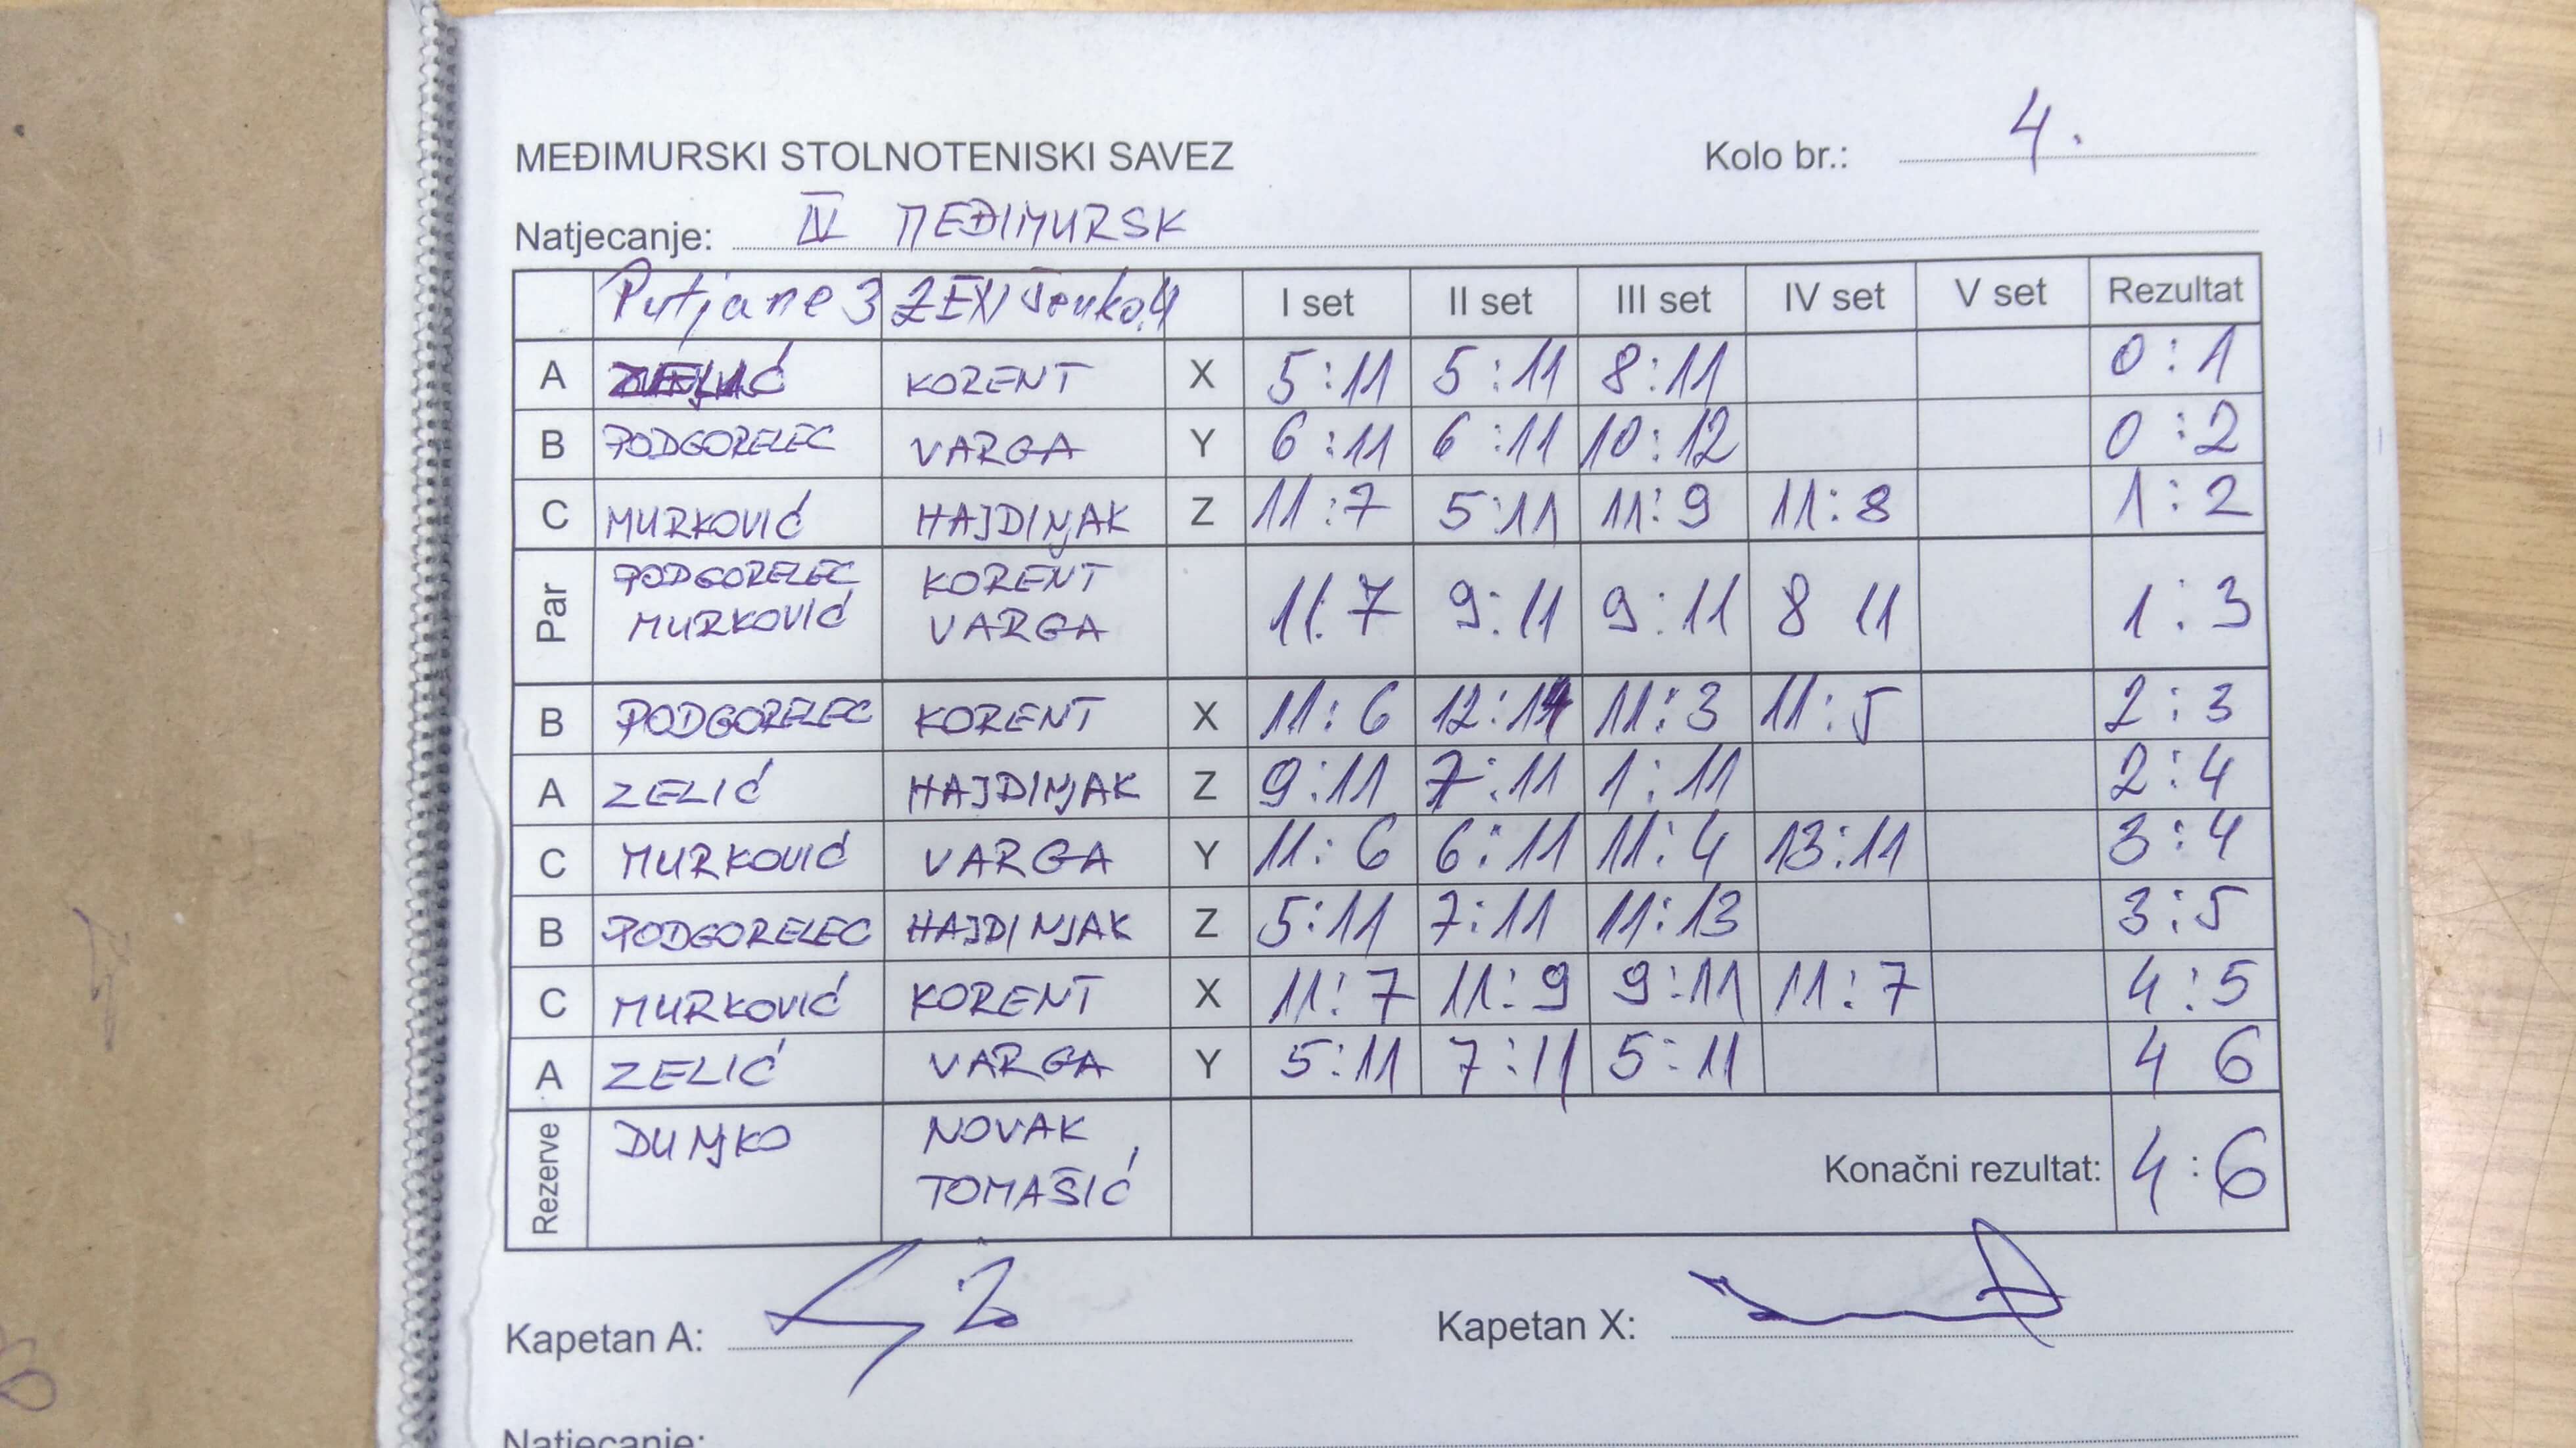 MEĐIMURSKI STOLNOTENISKI SAVEZ Kolo br.: 4.
Natjecanje: IV MEĐIMURSK
Putjane 3 ZEN I set II set III set IV set V set Rezultat
A KORENT X 5:11 5:11 8:11 0:1
B PODGORELEC VARGA Y 6:11 6:11 10:12 0:2
C MURKOVIĆ HAJDINJAK Z 11:7 5:11 11:9 11:8 1:2
Par PODGORELEC KORENT
MURKOVIĆ VARGA 11:7 9:11 9:11 8 11 1:3
B PODGORELEC KORENT X 11:6 12:14 11:3 11:5 2:3
A ZELIĆ HAJDINJAK Z 9:11 7:11 1:11 2:4
C MURKOVIĆ VARGA Y 11:6 6:11 11:4 13:11 3:4
B PODGORELEC HAJDINJAK Z 5:11 7:11 11:13 3:5
C MURKOVIĆ KORENT X 11:7 11:9 9:11 11:7 4:5
A ZELIĆ VARGA Y 5:11 7:11 5:11 4 6
Rezerve DUNJKO NOVAK
TOMAŠIĆ Konačni rezultat: 4:6
Kapetan A: Kapetan X:
Natjecanje: